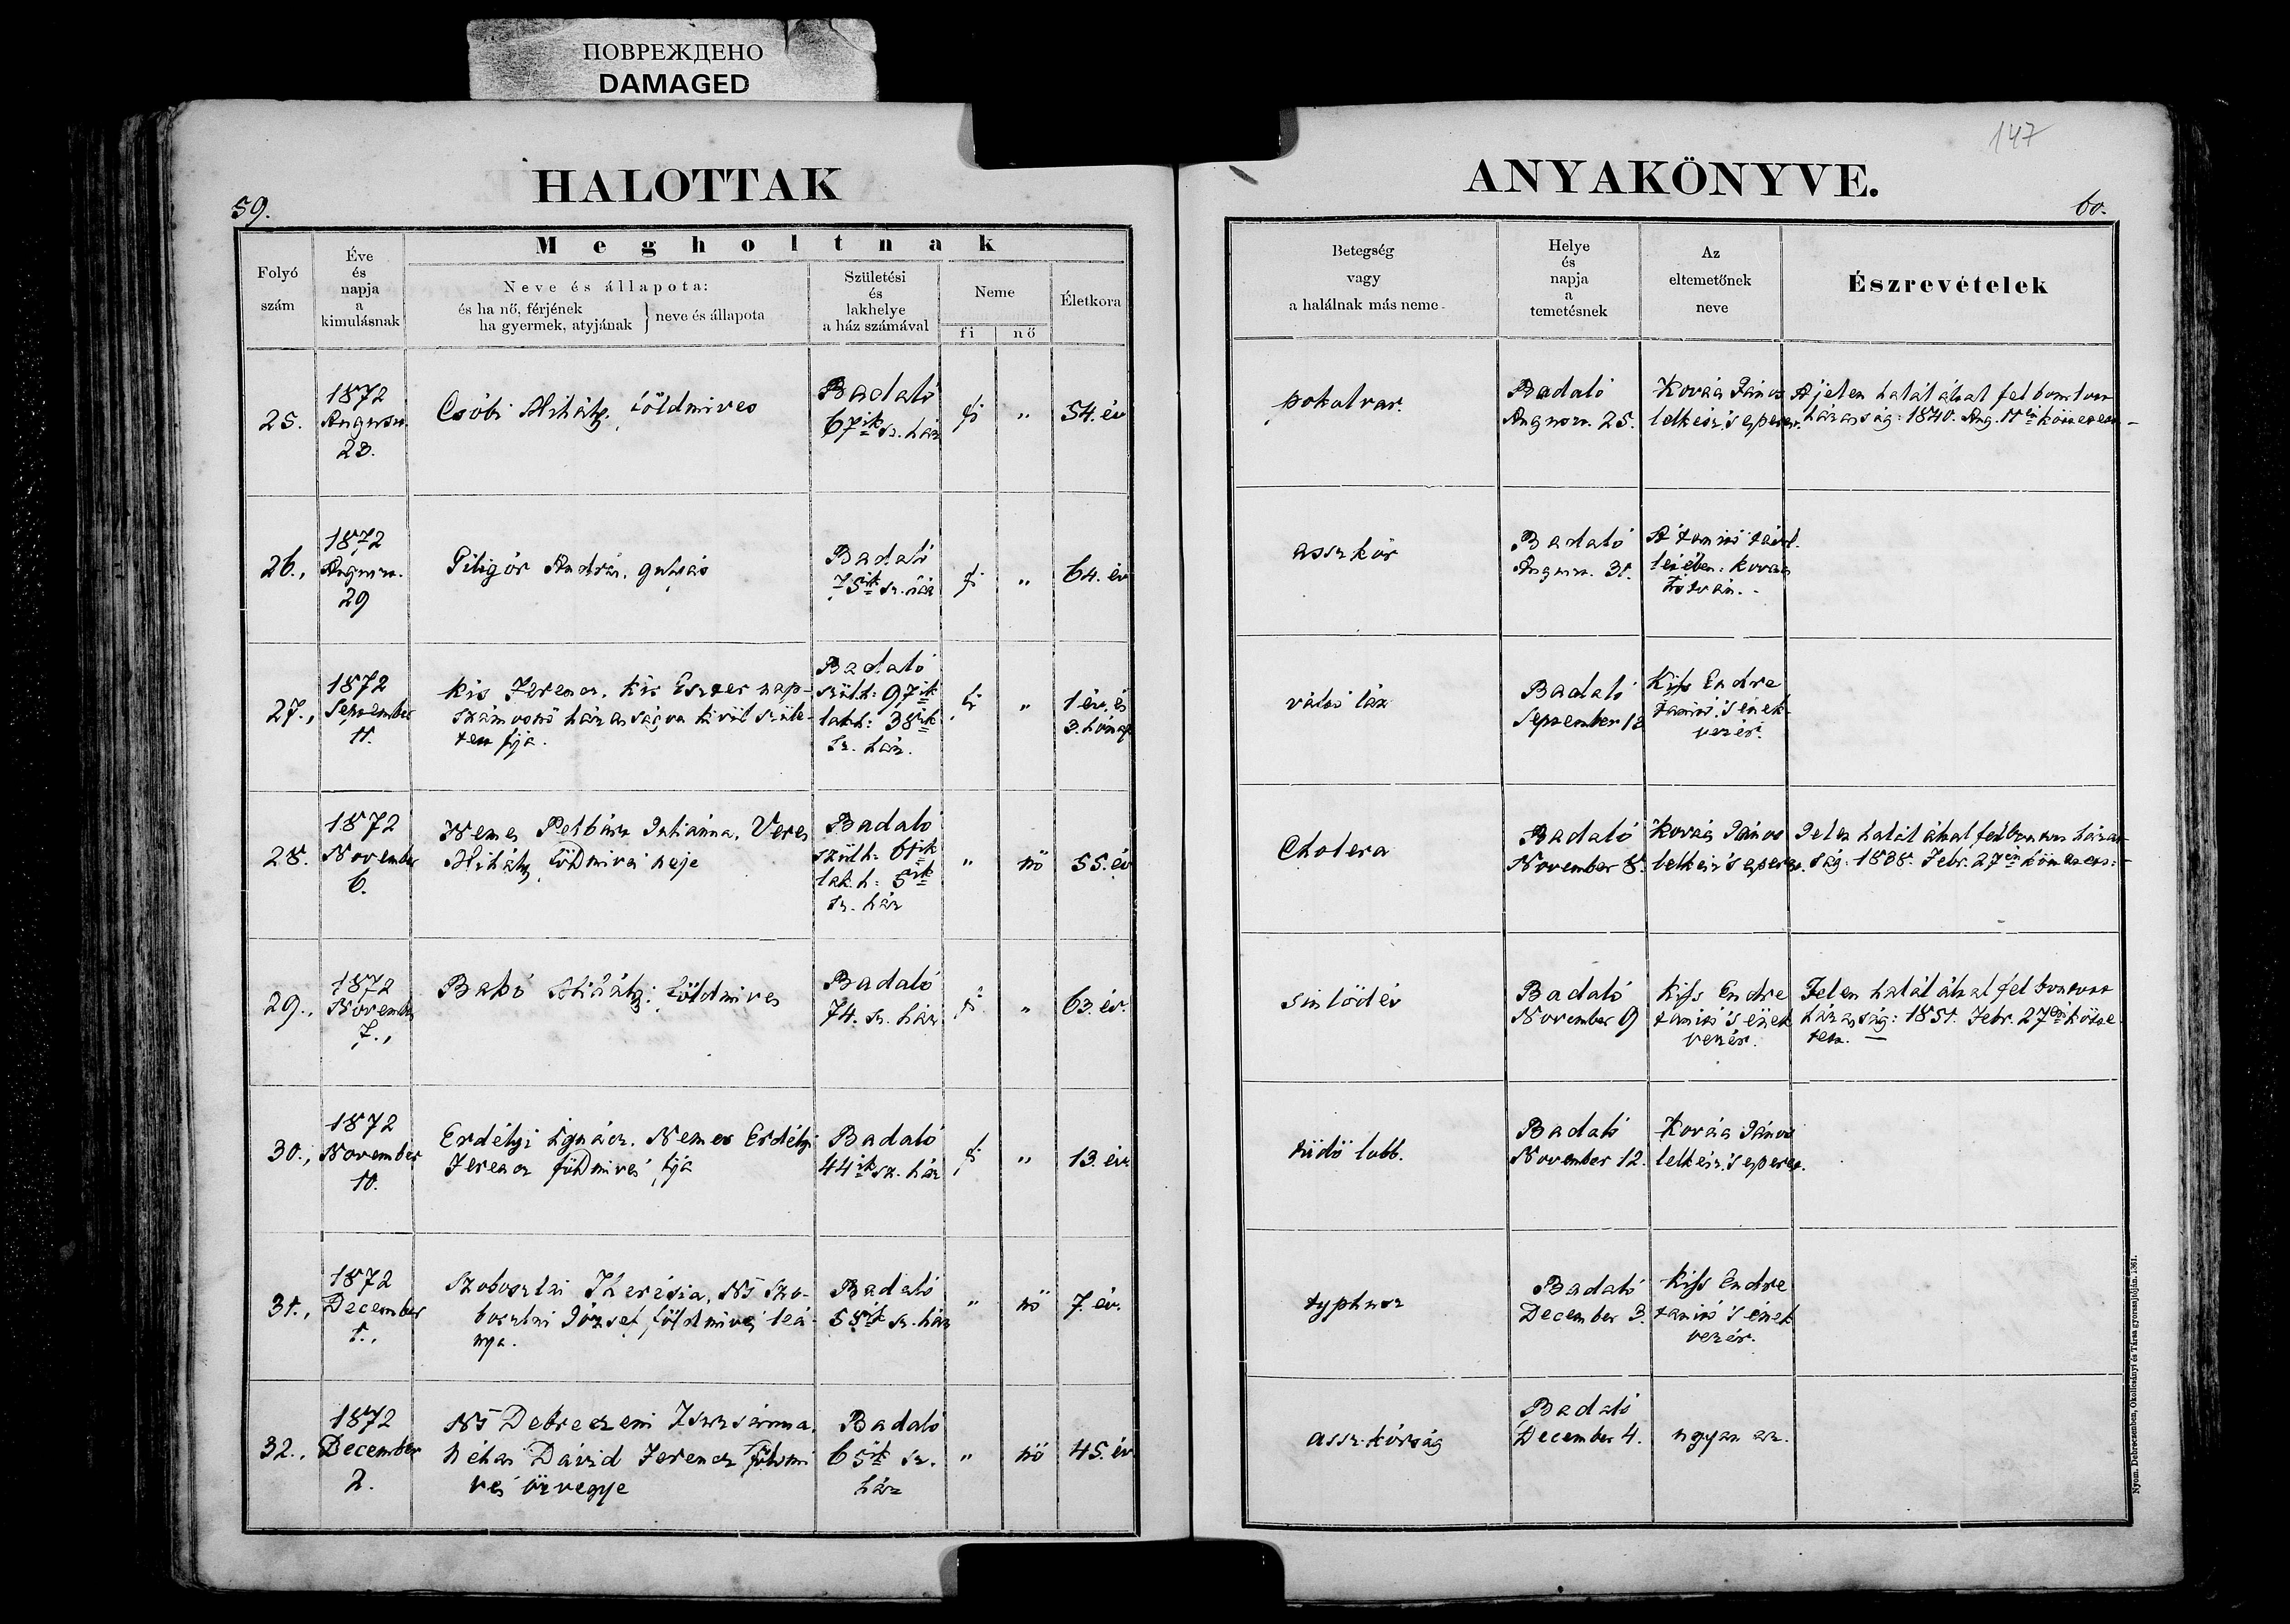 ПОВРЕЖДЕНО
DAMAGED
147
HALOTTAK
ANYAKÖNYVE.
59.
60.
Megholtnak
Folyó
szám
Éve
és
napja
a
kimulásnak
Neve és állapota:
és ha nő, férjének
ha gyermek, atyjának } neve és állapota
Születési
és
lakhelye
a ház számával
Neme
fi
nő
Életkora
Betegség
vagy
a halálnak más neme
Helye
és
napja
a
temetésnek
Az
eltemetőnek
neve
Észrevételek
25.
1872
August
23.
Csóbi Mihály, földmives
Badaló
67ik sz. ház
fi
"
54. év
pokolvar.
Badaló
August. 25.
Kovács János
lelkész 's esperes.
A jelen halál által felbomlott
házasság: 1840. Aug. 11én köttetett
26.,
1872
August.
29
Piligór András, gulyás
Badaló
75ik sz. ház
fi
"
64. év
assz kór
Badaló
August. 31.
A tanitó távol
létében: Kovács
István.
27.,
1872
September
11.
Kis Ferencz, Kis Eszter nap-
számosnő házasságon kivül szüle-
tett fija.
Badaló
szül.h: 97ik
lak.h: 38ik
sz. ház.
fi
"
1 év, és
3. hónap
váltó láz
Badaló
September 12
Kiss Endre
tanitó 's ének-
vezér.
28.
1872
November
6.
Nemes Petbász Juliánna, Veres
Mihály földmives neje
Badaló
szül.h: 61ik
lak.h: 5ik
sz. ház
"
nő
55. év
Cholera
Badaló
November 8.
Kovács János
lelkész 's esperes.
Jelen halál által felbomlott házas-
ság: 1838. Febr. 27én köttetett
29.,
1872
November
7.,
Bakó Mihály: földmives
Badaló
74. sz. ház
fi
"
63. év.
sinlődés
Badaló
November 9
Kiss Endre
tanitó 's ének
vezér.
Jelen halál által felbontott
házasság: 1851. Febr. 27én kötte-
tett.
30.,
1872
November
10.
Erdélyi Ignácz. Nemes Erdélyi
Ferencz földmives fija
Badaló
44ik sz. ház
fi
"
13. év.
tüdő lobb.
Badaló
November 12.
Kovács János
lelkész 's esperes.
31.,
1872
December
1.,
Szoboszlai Therésia, Ns Szo-
boszlai József földmives leá-
nya.
Badaló
58ik sz. ház
"
nő
7. év.
typhusz
Badaló
December 3.
Kiss Endre
tanitó 's ének
vezér.
32.,
1872
December
2.
Ns Debreczeni Zsuzsánna,
Néhai Dávid Ferencz földmi
ves özvegye
Badaló
65ik sz.
ház
"
nő
45. év.
assz-kórság
Badaló
December 4.
ugyan az.
Nyom. Debreczenben, Okolicsányi és Társa gyorssajtóján. 1861.